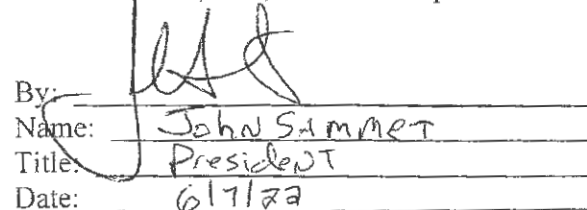 By:
Name: John SAmmeT
Title: PresideNT
Date: 6/7/22